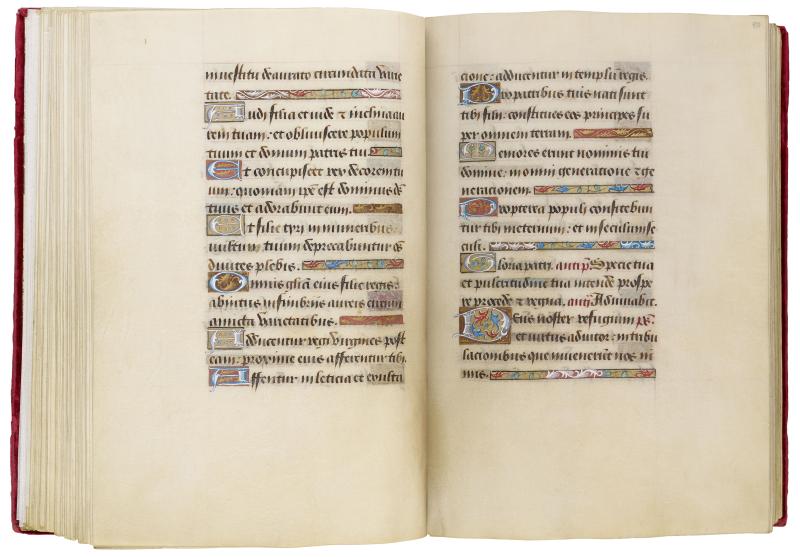 in vestitu deaurato circundata varie
tate.
Audi filia et vide et inclina au
rem tuam: et obliviscere populum
tuum et domum patris tui.
Et concupiscet rex decorem tu
um: quoniam ipe est dominus de
tuus et adorabunt eum.
Et filie tyri in muneribus
vultum tuum deprecabuntur oes
divites plebis.
Omnis glia eius filie regis:
ab intus in fimbriis aureis circum
amicta varietatibus.
Adducentur regi virgines post
eam: proxime eius afferentur tibi.
Afferentur in leticia et exulta
cione: adducentur in templu regis.
Pro patribus tuis nati sunt
tibi filii: constitues eos principes su
per omnem terram.
Memores erunt nominis tui
domine: in omni generatione et ge
neracionem.
Propterea populi confitebun
tur tibi in eternum: et in seculum se
culi.
Gloria patri. antip. Specie tua
et pulcritudine tua intende prospe
re procede et regna. anti. Adiuvabit.
Deus noster refugium ps.
et virtus: adiutor in tribu
lacionibus que invenerut nos ni
mis.